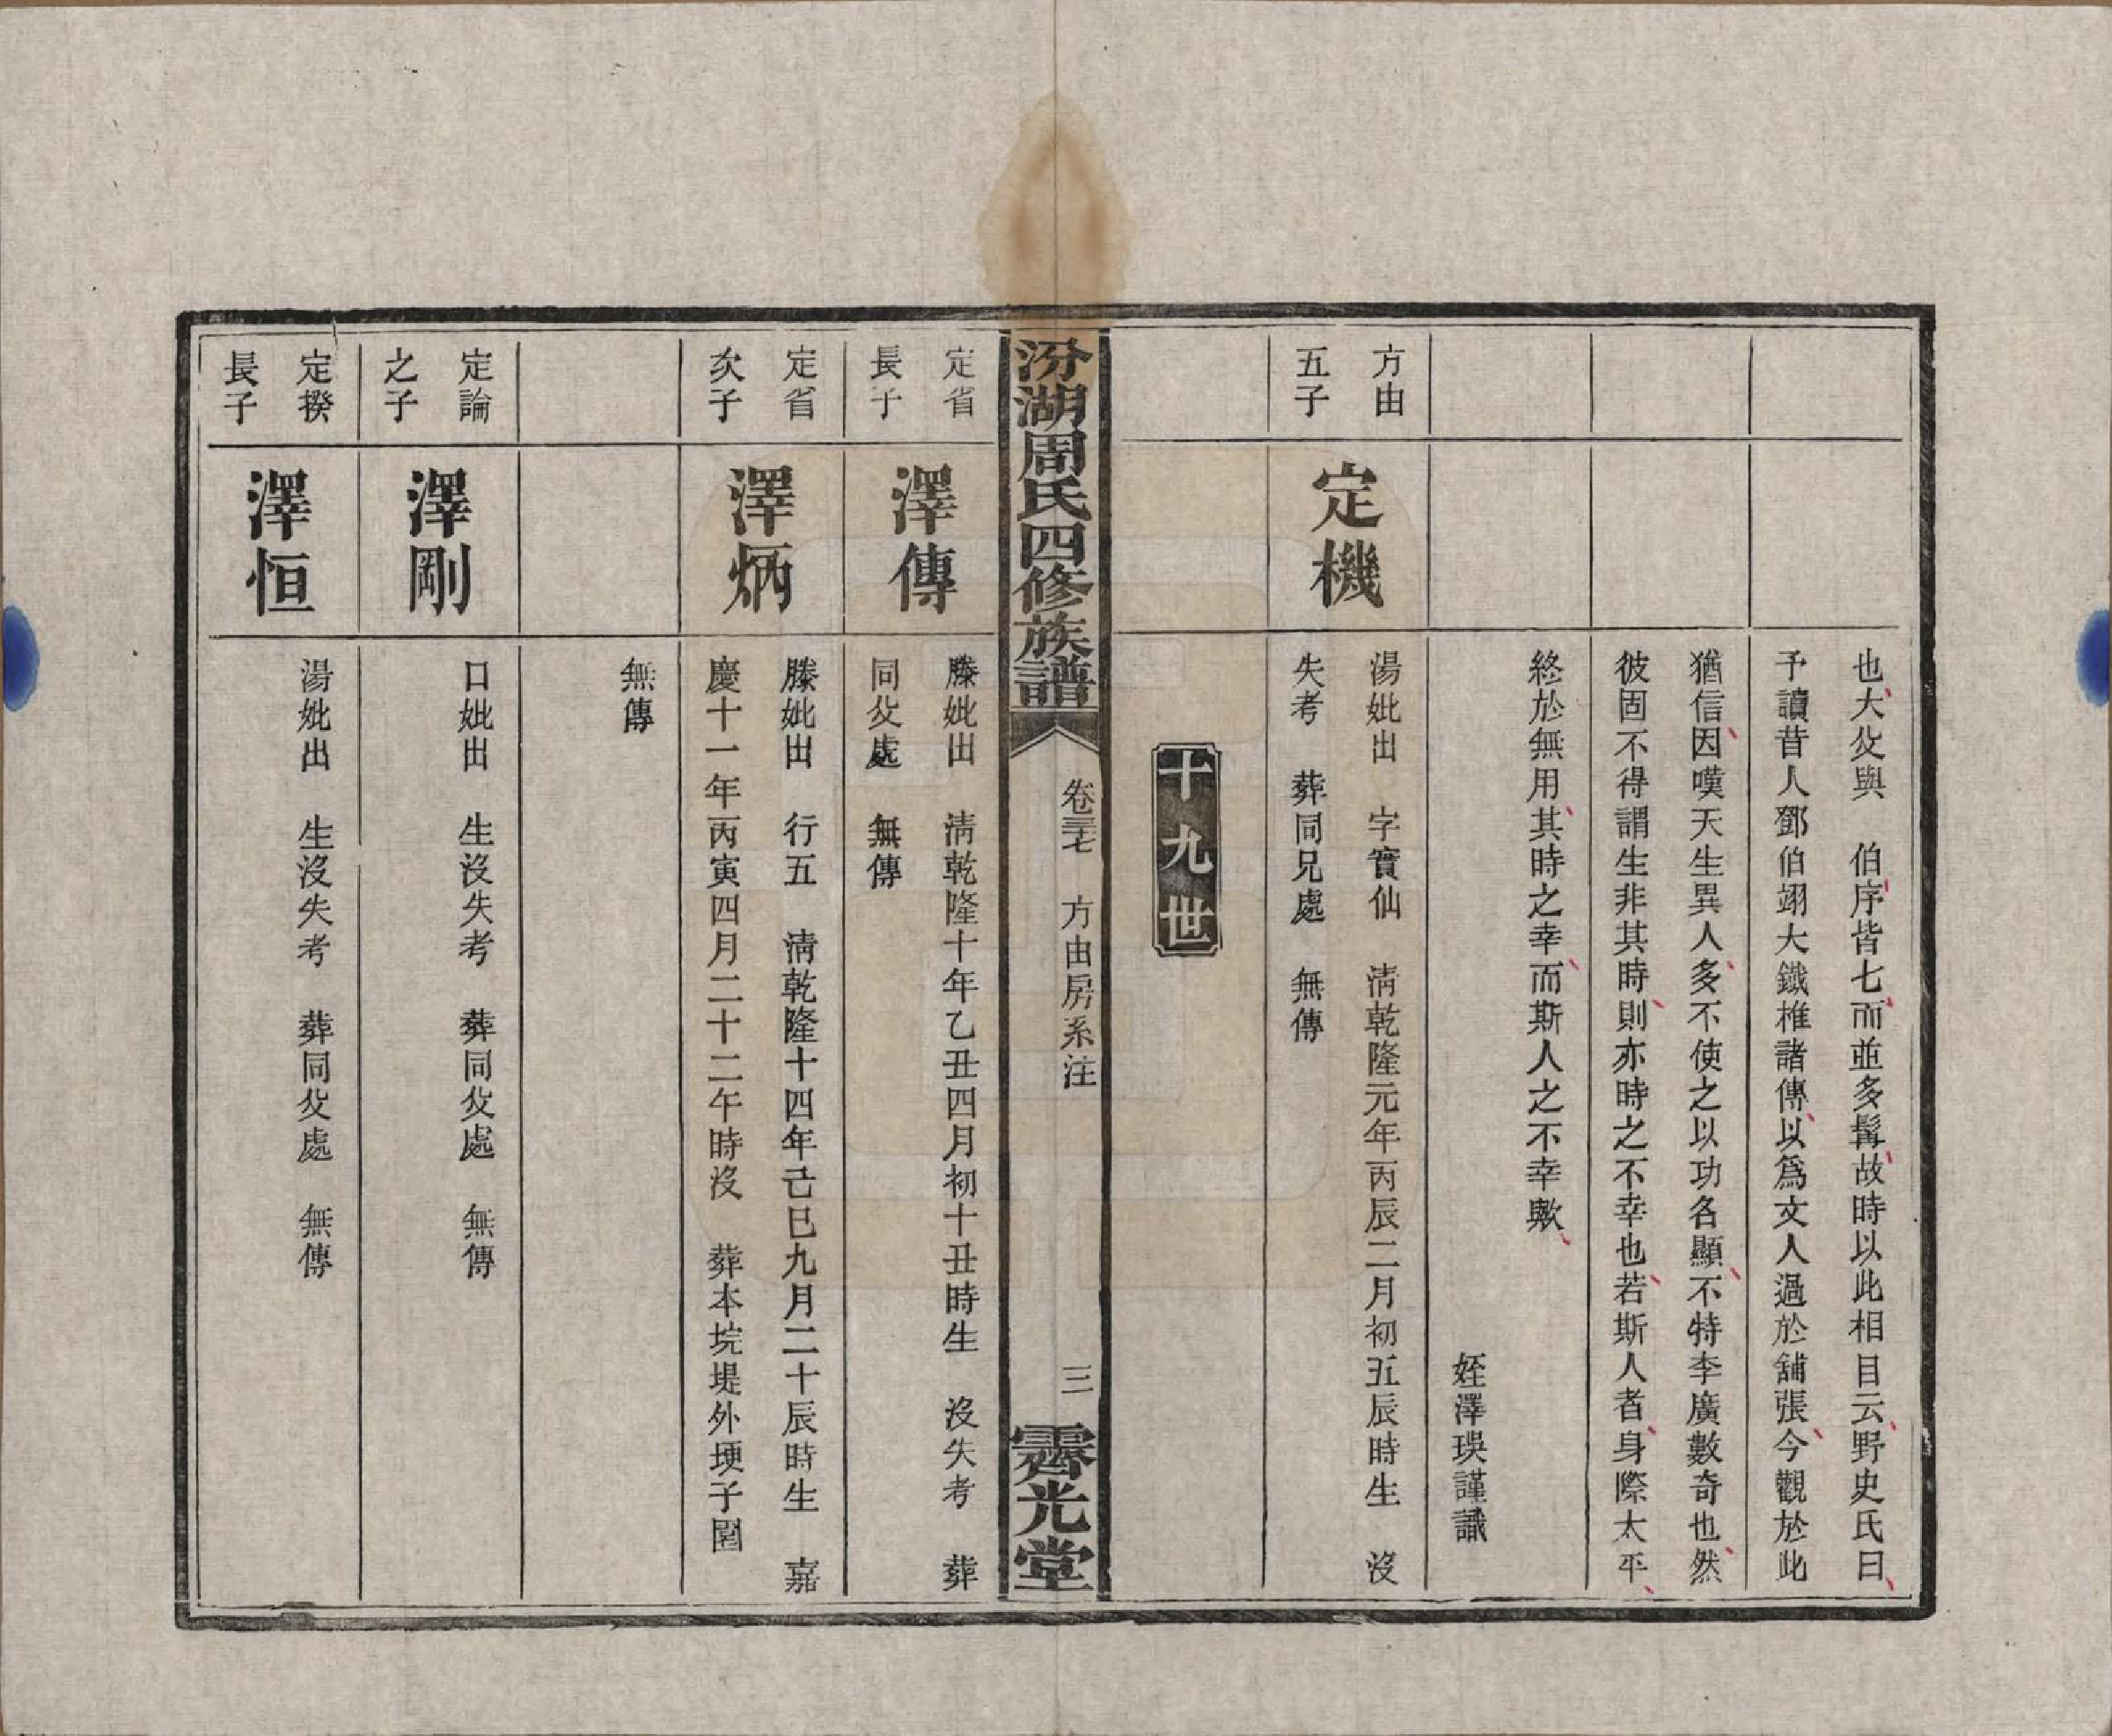 也大父與　伯序皆七而並多髯故時以此相目云野史氏曰
予讀昔人鄧伯翊大鐵椎諸傳以爲文人過於舖張今觀於此
猶信因嘆天生異人多不使之以功名顯不特李廣數奇也然
彼固不得謂生非其時則亦時之不幸也若斯人者身際太平
終於無用其時之幸而斯人之不幸歟
姪澤瑛謹識
方由
五子
定機
湯妣出　字寶仙　淸乾隆元年丙辰二月初五辰時生　沒
失考　葬同兄處　無傳
十九世
汾湖周氏四修族譜
卷三七　方由房系注
三
霽光堂
定省
長子
澤傳
滕妣出　淸乾隆十年乙丑四月初十丑時生　沒失考　葬
同父處　無傳
定省
次子
澤炳
滕妣出　行五　淸乾隆十四年己巳九月二十辰時生　嘉
慶十一年丙寅四月二十二午時沒　葬本垸堤外埂子園
無傳
定論
之子
澤剛
口妣出　生沒失考　葬同父處　無傳
定揆
長子
澤恒
湯妣出　生沒失考　葬同父處　無傳